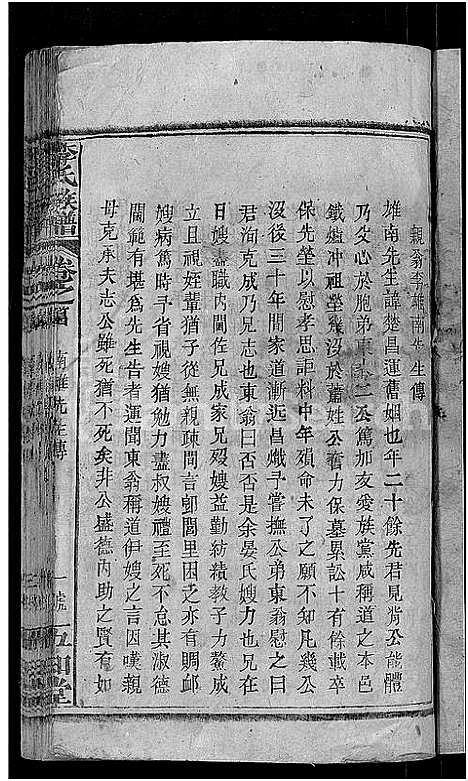 親翁李雄南先生傳
雄南先生諱楚昌運舊姻也年二十餘先君見背公能體
乃父心於胞弟東二公篤加友愛族黨咸稱道之本邑
鐵爐冲祖塋幾沒於蕭姓公奮力保墓累訟十有餘載卒
保先塋以慰孝思詎料中年殞命未了之願不知凡幾公
沒後三十年間家道漸近昌熾予嘗撫公弟東翁慰之曰
君洵克成乃兄志也東翁曰否否是余晏氏嫂力也兄在
日嫂盡職內閫佐兄成家兄歿嫂益勤紡績教子力鰲成
立且視姪輩猶子從無疎間言卹閭里困乏亦有賙卹
嫂病篤時予省視嫂猶勉力盡叔嫂禮至死不怠其淑德
閫範有堪為先生告者運聞東翁稱道伊嫂之言因嘆親
母克承夫志公雖死猶不死矣非公盛德內助之賢有如
李氏族譜
卷之
南雄先生傳
一號
五知堂